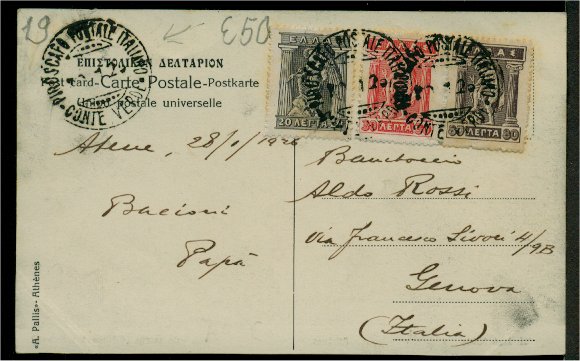 19
£50
PIROSCAFO POSTALE ITALIANO
CONTE VERDE
ΕΠΙΣΤΟΛΙΚΟΝ ΔΕΛΤΑΡΙΟΝ
Post card-Carte Postale-Postkarte
Union postale universelle
ΕΛΛΑΣ
20 ΛΕΠΤΑ 20
ΛΕΠΤΑ
80 ΛΕΠΤΑ 80
Atene, 28/1/1926
Bacioni
Papà
Aldo Rossi
Via Francesco Sivori 4/9B
Genova
(Italia)
«A. Pallis»- Athènes